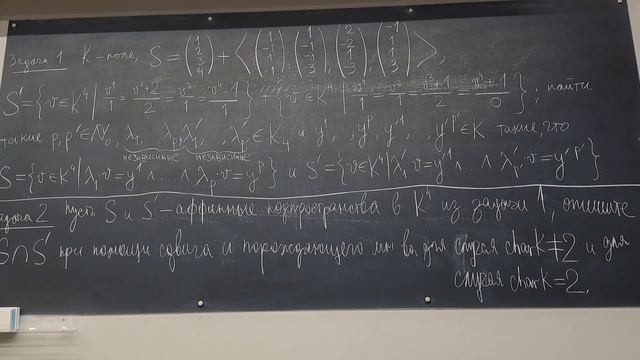 Задача 1. K - поле, S = (1 2 3 4) + <(1 -1 1 1), (1 -1 -1 3), (2 -2 1 3), (-1 1 1 -3)>,
S' = {v∈K⁴ | v¹/1 = (v²+2)/2 = v³/1 = (v⁴-1)/1} + {v∈K⁴ | v¹/1 = v²/1 = (v³+1)/2 = (v⁴+1)/0}; найти
такие p, p'∈N₀, λ₁, λₚ, λ'₁, λ'ₚ'∈K₄ и y¹, yᵖ, y'¹, y'ᵖ'∈K такие, что
независимые независимые
S = {v∈K⁴ | λ₁·v = y¹ ∧ … ∧ λₚ·v = yᵖ} и S' = {v∈K⁴ | λ'₁·v = y'¹ ∧ … ∧ λ'ₚ'·v = y'ᵖ'}.
Задача 2 Пусть S и S' - аффинные подпространства в K⁴ из задачи 1, опишите
S∩S' при помощи сдвига и порождающего мн-ва для случая char K ≠ 2 и для
случая char K = 2.